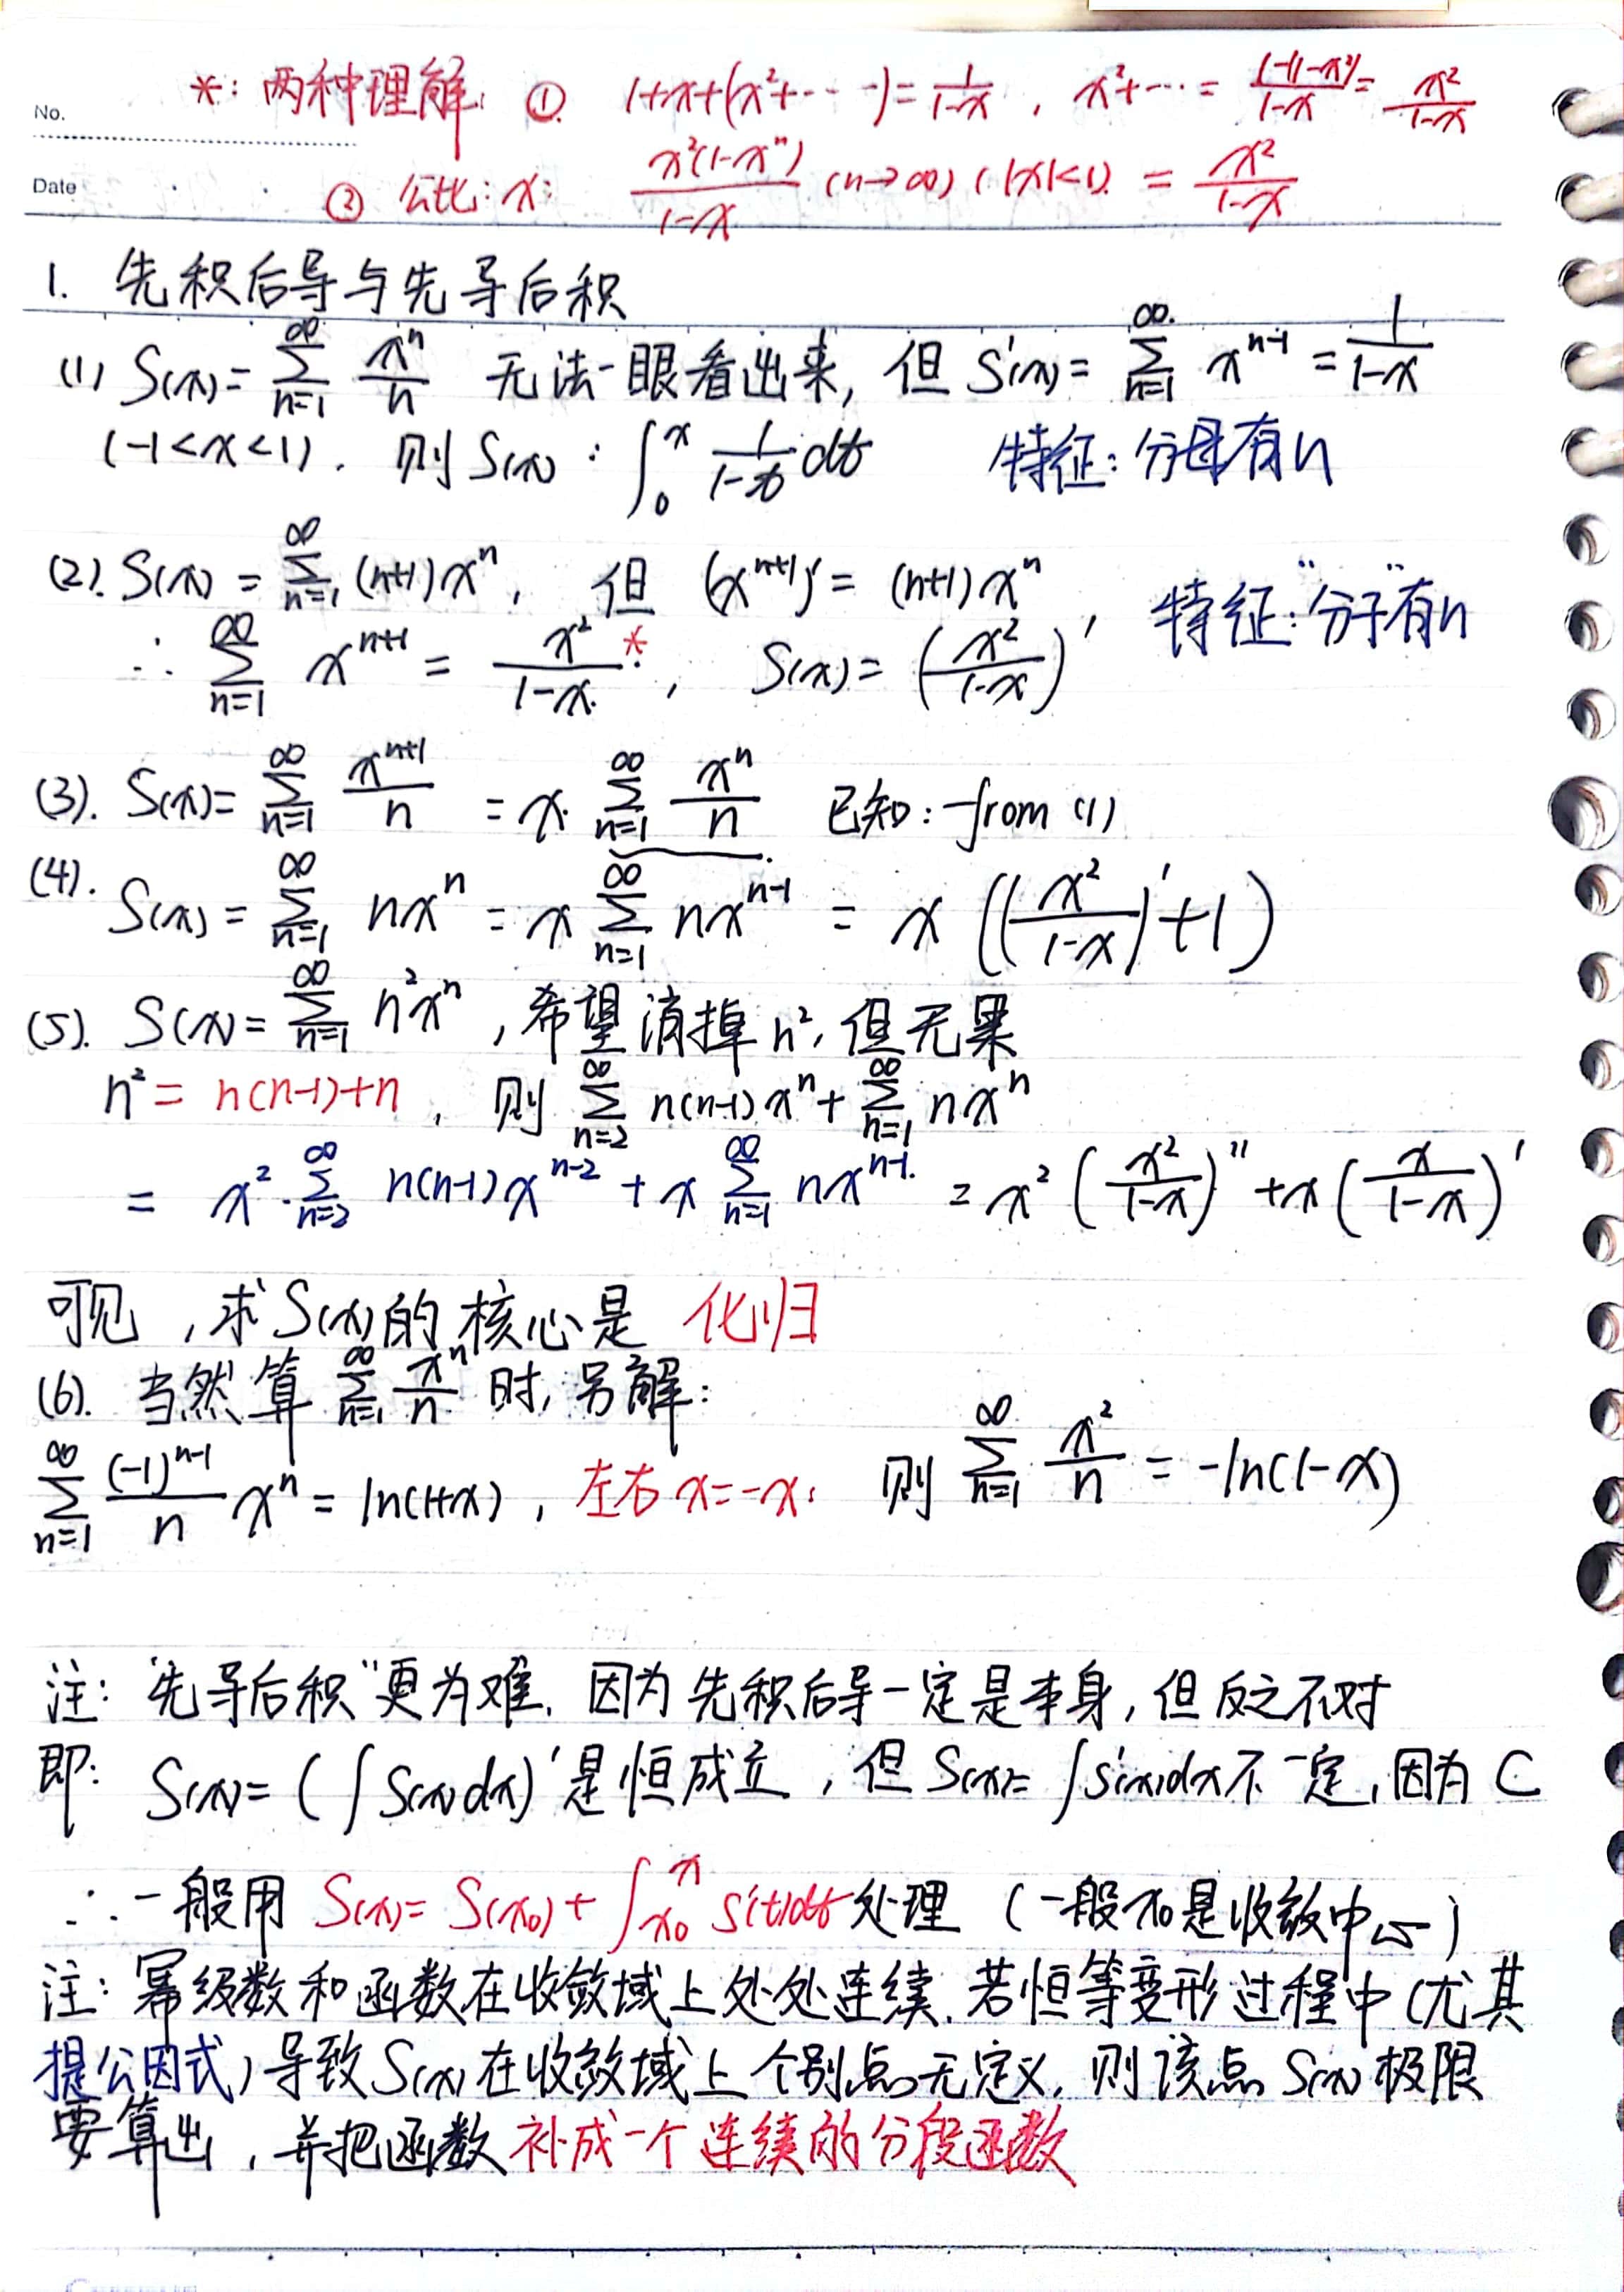 No.
Date
*: 两种理解: ① 1+x+(x²+⋯⋯)=1/(1-x), x²+⋯= (1-(1-x²))/(1-x) = x²/(1-x)
② 公比: x: x²(1-xⁿ)/(1-x) (n→∞) (|x|<1) = x²/(1-x)
1. 先积后导与先导后积
(1) S(x)= ∑_{n=1}^{∞} xⁿ/n 无法一眼看出来, 但 S'(x)= ∑_{n=1}^{∞} x^{n-1} = 1/(1-x)
(-1<x<1). 则 S(x): ∫_0^x 1/(1-t) dt 特征: 分母有n
(2). S(x) = ∑_{n=1}^{∞} (n+1)xⁿ, 但 (x^{n+1})' = (n+1)xⁿ, 特征: "分子"有n
∴ ∑_{n=1}^{∞} x^{n+1} = x²/(1-x) *, S(x)= (x²/(1-x))'
(3). S(x)= ∑_{n=1}^{∞} x^{n+1}/n = x· ∑_{n=1}^{∞} xⁿ/n 已知: from (1)
(4). S(x) = ∑_{n=1}^{∞} nxⁿ = x ∑_{n=1}^{∞} nx^{n-1} = x ((x²/(1-x))'+1)
(5). S(x)= ∑_{n=1}^{∞} n²xⁿ, 希望消掉 n², 但无果
n² = n(n-1)+n, 则 ∑_{n=2}^{∞} n(n-1)xⁿ + ∑_{n=1}^{∞} nxⁿ
= x²·∑_{n=2}^{∞} n(n-1)x^{n-2} + x ∑_{n=1}^{∞} nx^{n-1} = x² (x²/(1-x))'' + x (x/(1-x))'
可见, 求S(x)的核心是 化归
(6). 当然算 ∑_{n=1}^{∞} xⁿ/n 时, 另解:
∑_{n=1}^{∞} (-1)^{n-1}/n xⁿ = ln(1+x), 左右 x=-x: 则 ∑_{n=1}^{∞} x²/n = -ln(1-x)
注: "先导后积"更为难. 因为先积后导一定是本身, 但反之不对
即: S(x)= (∫S(x)dx)' 是恒成立, 但 S(x)= ∫S'(x)dx 不一定, 因为 C
∴ 一般用 S(x)= S(x₀)+ ∫_{x₀}^x S'(t)dt 处理 (一般x₀是收敛中心)
注: 幂级数和函数在收敛域上处处连续. 若恒等变形过程中(尤其
提公因式)导致S(x)在收敛域上个别点无定义, 则该点S(x)极限
要算出, 并把函数补成一个连续的分段函数